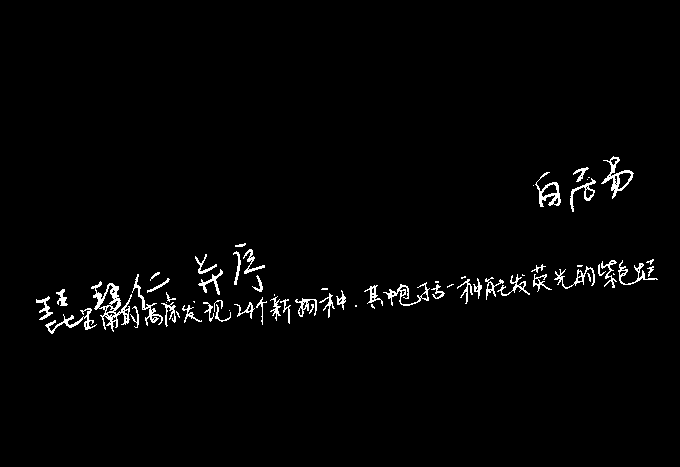 白居易
琵琶仁 并序
的高原发现24个新物种.其中包括一种能发荧光的紫色蛙